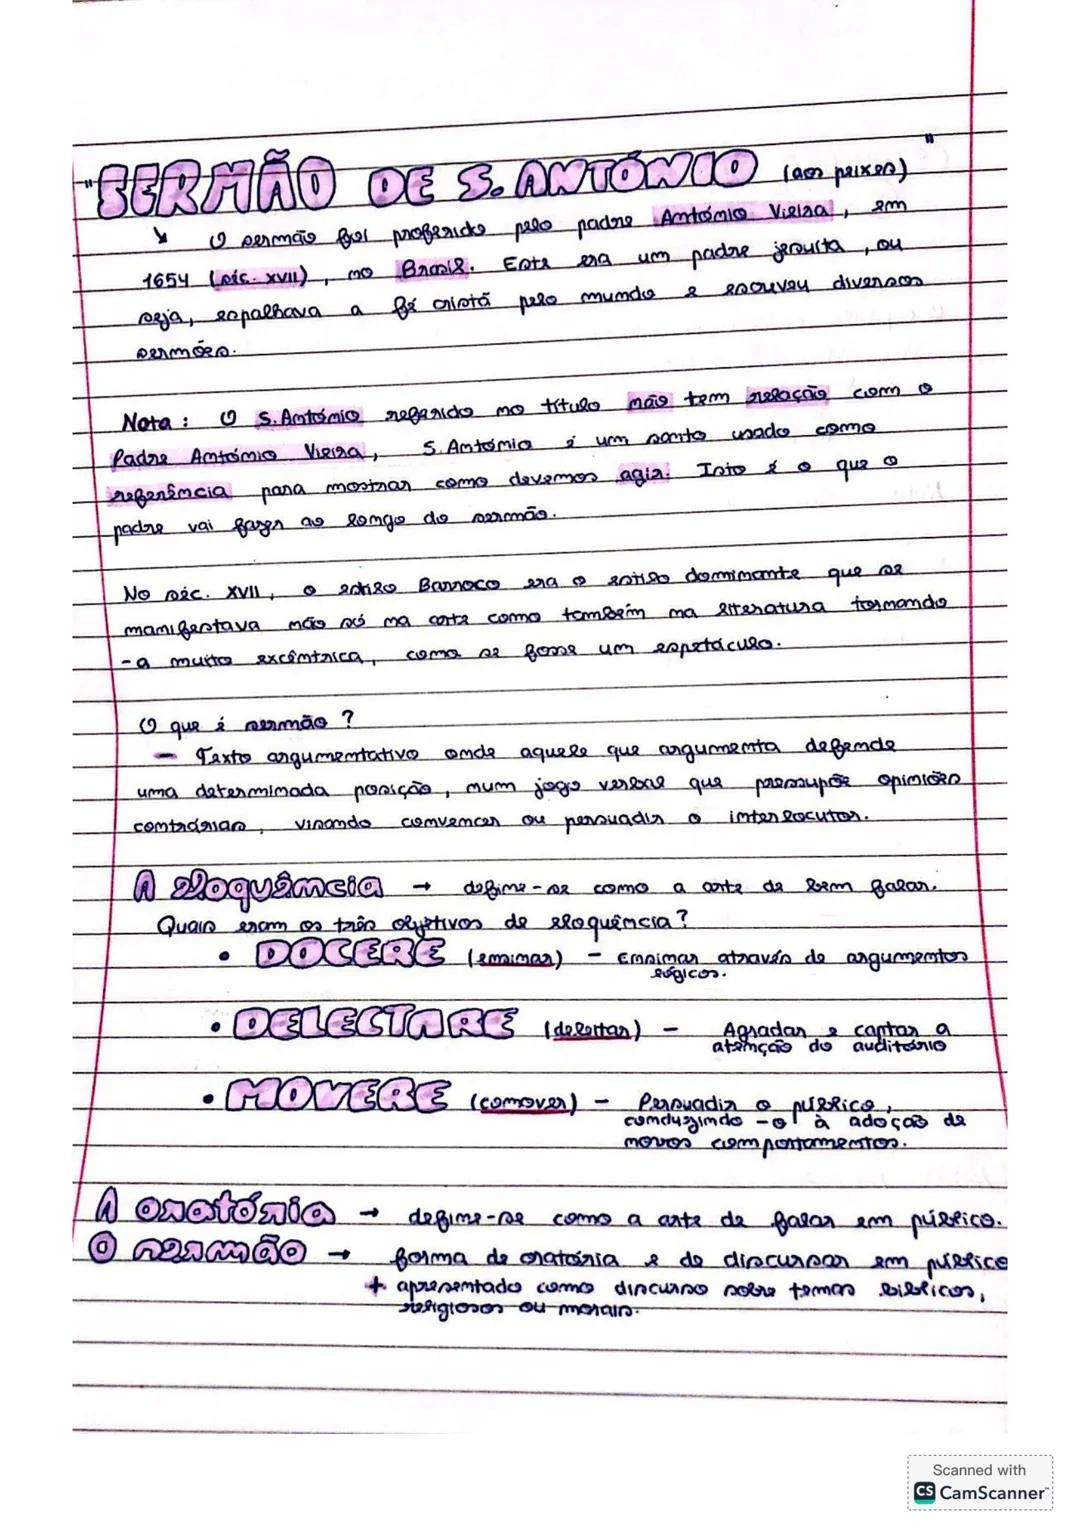 "SERMÃO DE S. ANTÓNIO (aos peixes)"
↳ O sermão foi proferido pelo padre António Vieira, em
1654 (séc. XVII), no Brasil. Este era um padre jesuíta, ou
seja, espalhava a fé cristã pelo mundo e escreveu diversos
sermões.
Nota: O S. António referido no título não tem relação com o
Padre António Vieira, S. António é um santo usado como
referência para mostrar como devemos agir. Isto é o que o
padre vai fazer ao longo do sermão.
No séc. XVII, o estilo Barroco era o estilo dominante que se
manifestava não só na arte como também na literatura tornando
-a muito excêntrica, como se fosse um espetáculo.
O que é sermão?
- Texto argumentativo onde aquele que argumenta defende
uma determinada posição, num jogo verbal que pressupõe opiniões
contrárias, visando convencer ou persuadir o interlocutor.
A eloquência → define-se como a arte de bem falar.
Quais eram os três objetivos de eloquência?
• DOCERE (ensinar) - Ensinar através de argumentos
lógicos.
• DELECTARE (deleitar) - Agradar e captar a
atenção do auditório
• MOVERE (comover) - Persuadir o público,
conduzindo-o à adoção de
novos comportamentos.
A oratória → define-se como a arte de falar em público.
O sermão → forma de oratória e de discursar em público
+ apresentado como discurso sobre temas bíblicos,
religiosos ou morais.
Scanned with
CS CamScanner